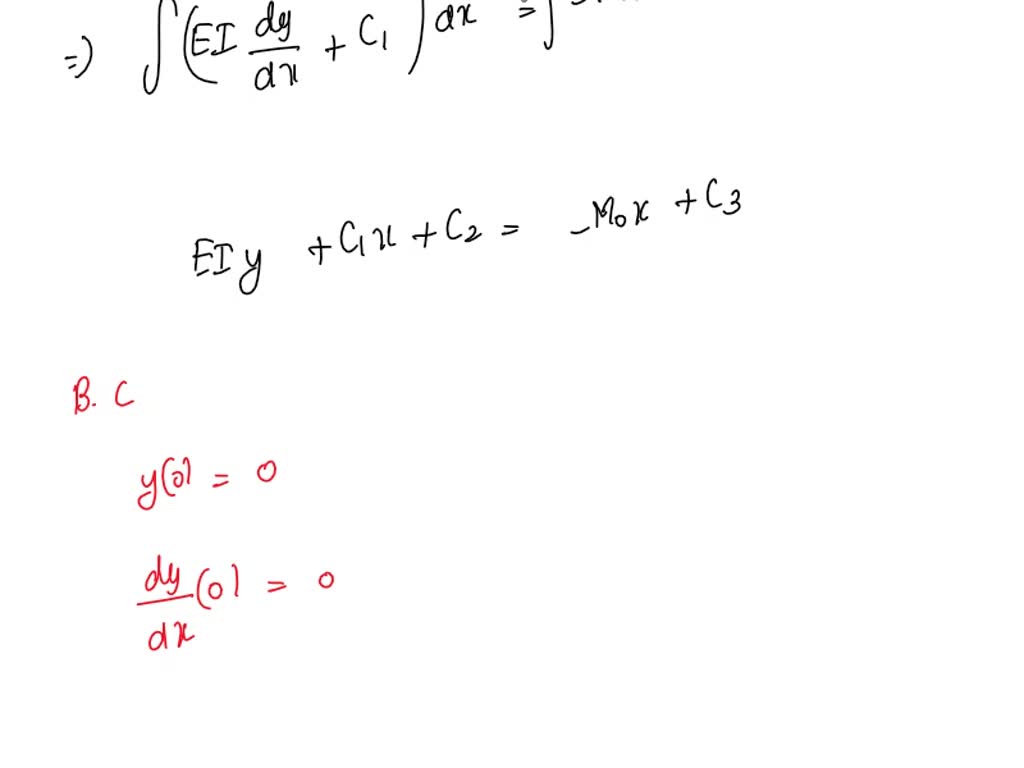 =) ∫(EI dy/dx + C₁) dx = ∫
EI y + C₁x + C₂ = -M₀x + C₃
B. C
y(0) = 0
dy/dx (0) = 0